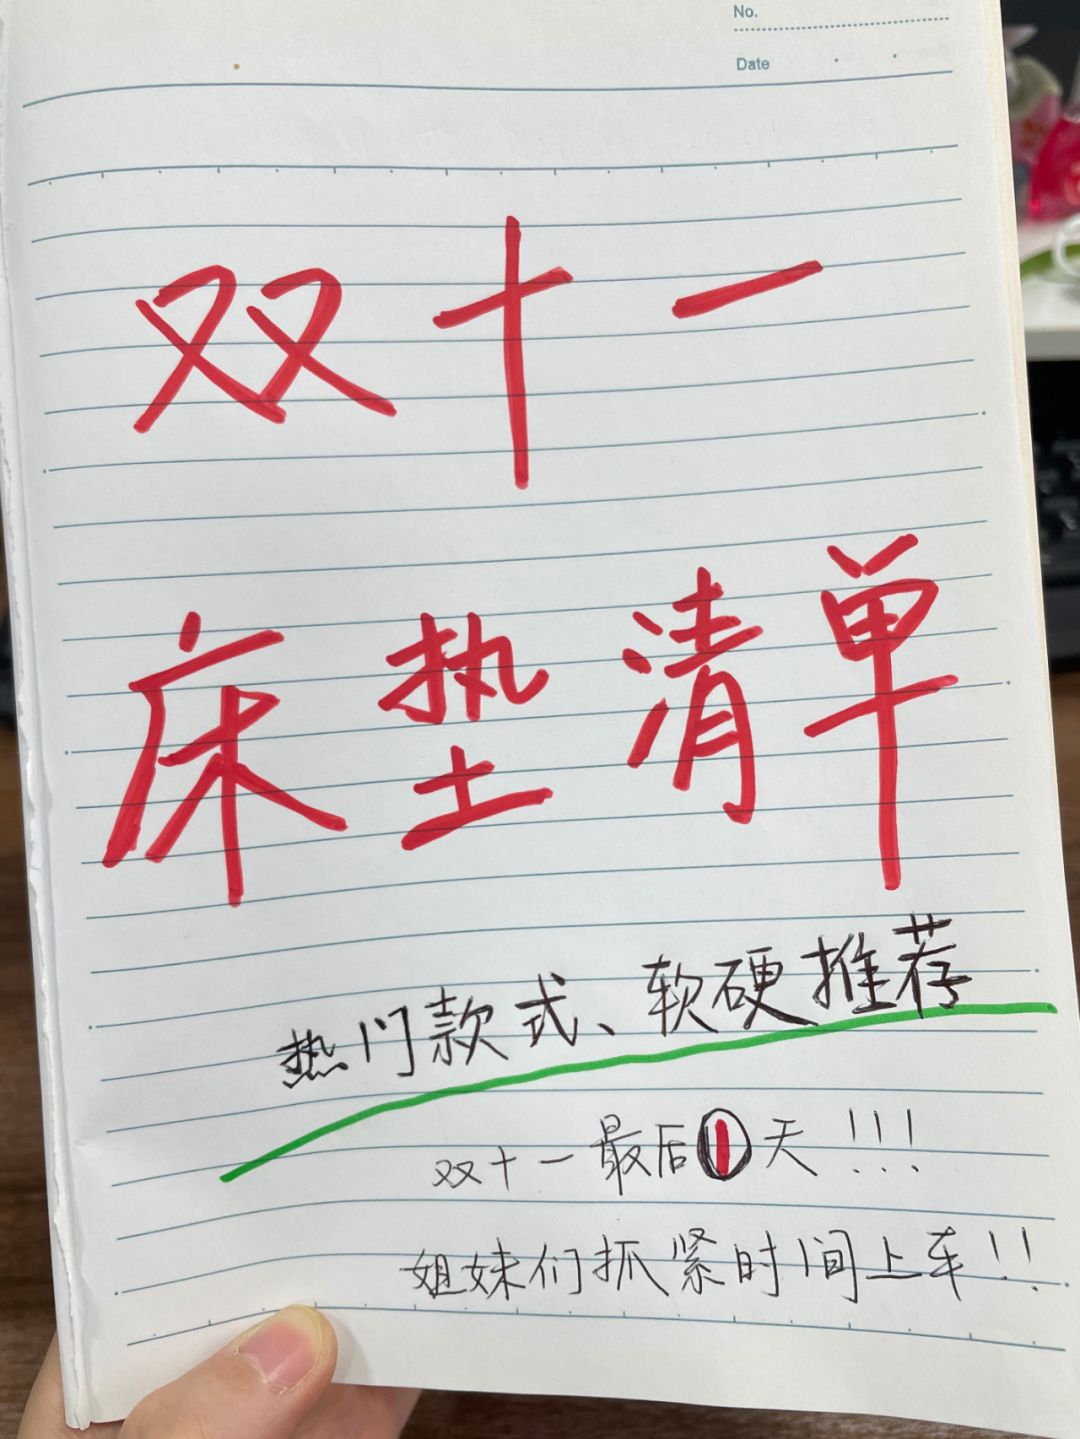 No.
Date
双十一
床垫清单
热门款式、软硬推荐
双十一最后1天!!!
姐妹们抓紧时间上车!!